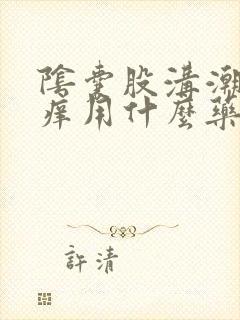 陰囊股溝潮
癢用什麼藥
許清